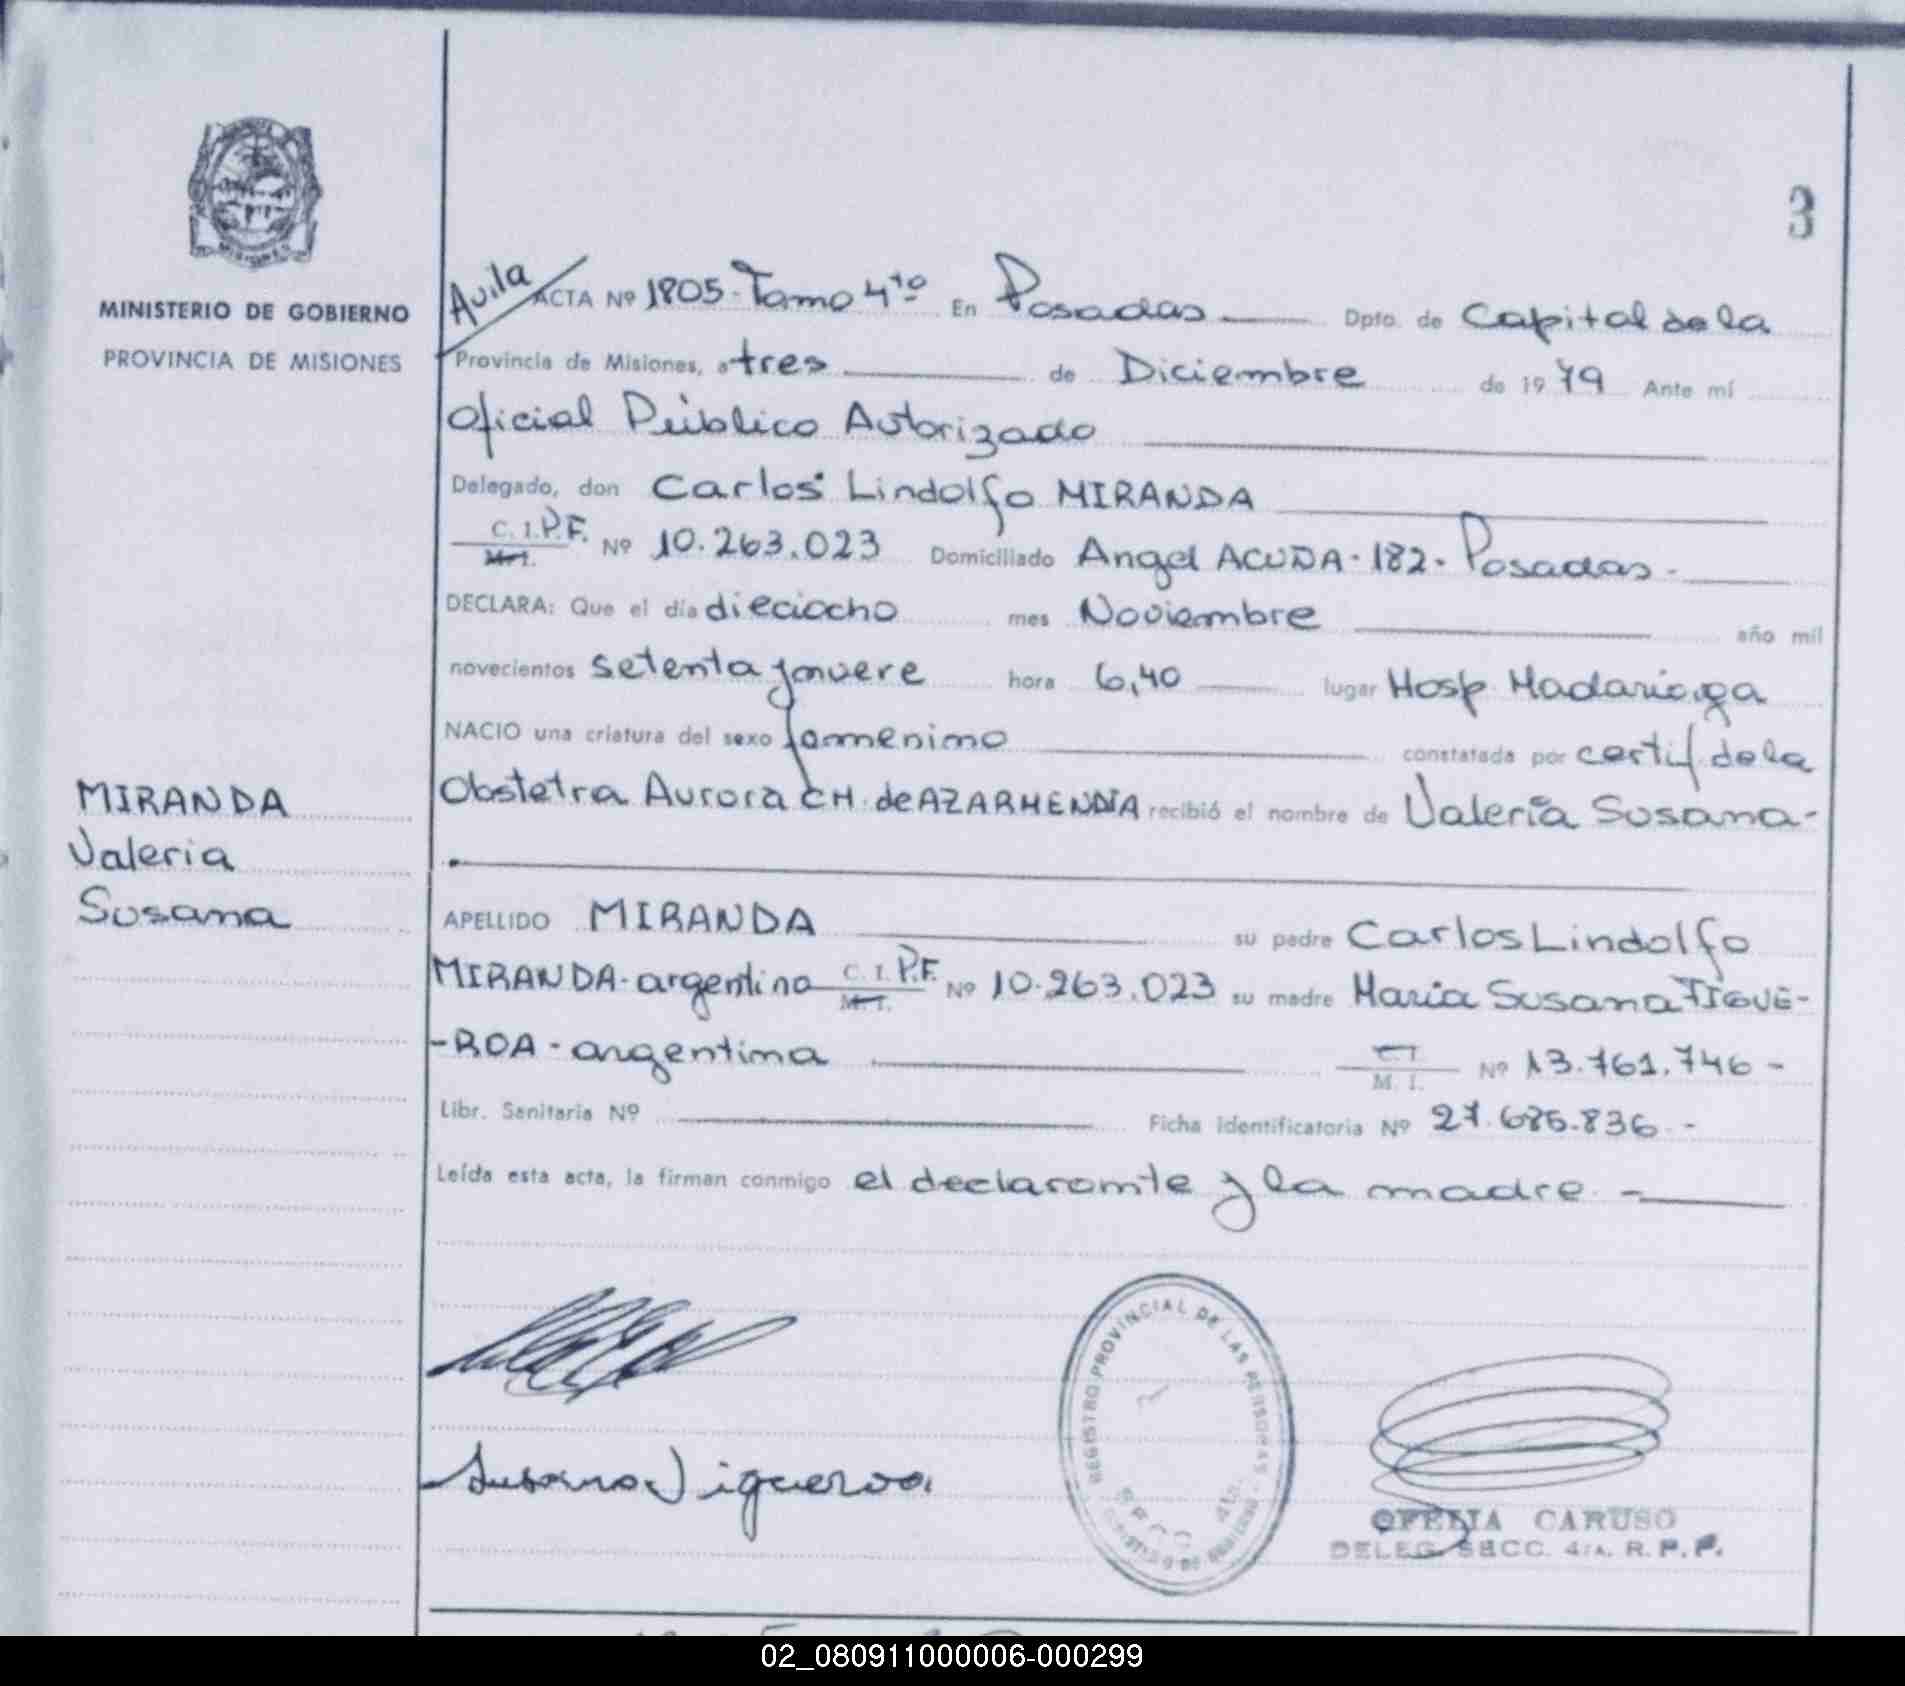 3
MINISTERIO DE GOBIERNO
PROVINCIA DE MISIONES
MIRANDA
Valeria
Susana
Avila
ACTA Nº 1805-Tomo 4to En Posadas Dpto. de Capital de la
Provincia de Misiones, a tres de Diciembre de 1979 Ante mí
Oficial Público Autorizado
Delegado, don Carlos Lindolfo MIRANDA
C. I. P.F. M. I. Nº 10.263.023 Domiciliado Angel ACUÑA-182-Posadas-
DECLARA: Que el día dieciocho mes Noviembre año mil
novecientos setenta y nueve hora 6,40 lugar Hosp Madariaga
NACIO una criatura del sexo femenino constatada por certif de la
Obstetra Aurora CH. de AZARMENDIA recibió el nombre de Valeria Susana-
APELLIDO MIRANDA su padre Carlos Lindolfo
MIRANDA-argentino C. I. P.F. M. I. Nº 10.263.023 su madre Maria Susana FIGUE-
-ROA-argentina C I M. I. Nº 13.761.746-
Libr. Sanitaria Nº Ficha identificatoria Nº 27.685.836.-
Leída esta acta, la firman conmigo el declarante y la madre.-
Susana Figueroa
REGISTRO PROVINCIAL DE LAS PERSONAS
SECC. 4ta.
OFELIA CARUSO
DELEG. SECC. 4TA. R. P. P.
02_080911000006-000299